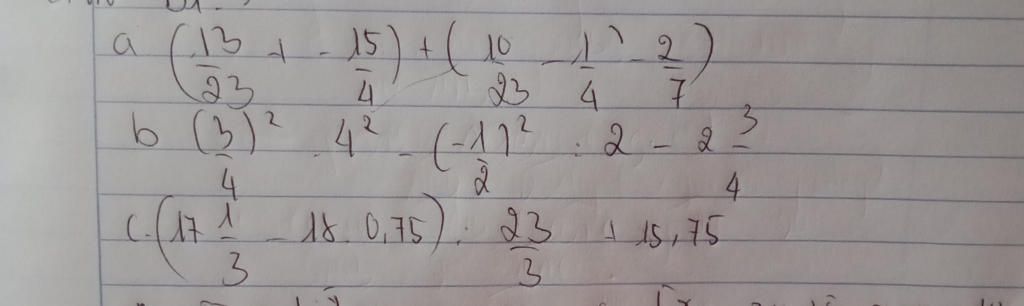 a (13/23 + -15/4) + (10/23 - 1/4 - 2/7)
b (3/4)² . 4² - (-1/2)² : 2 - 2 3/4
c. (17 1/3 - 18. 0,75) : 23/3 + 15,75